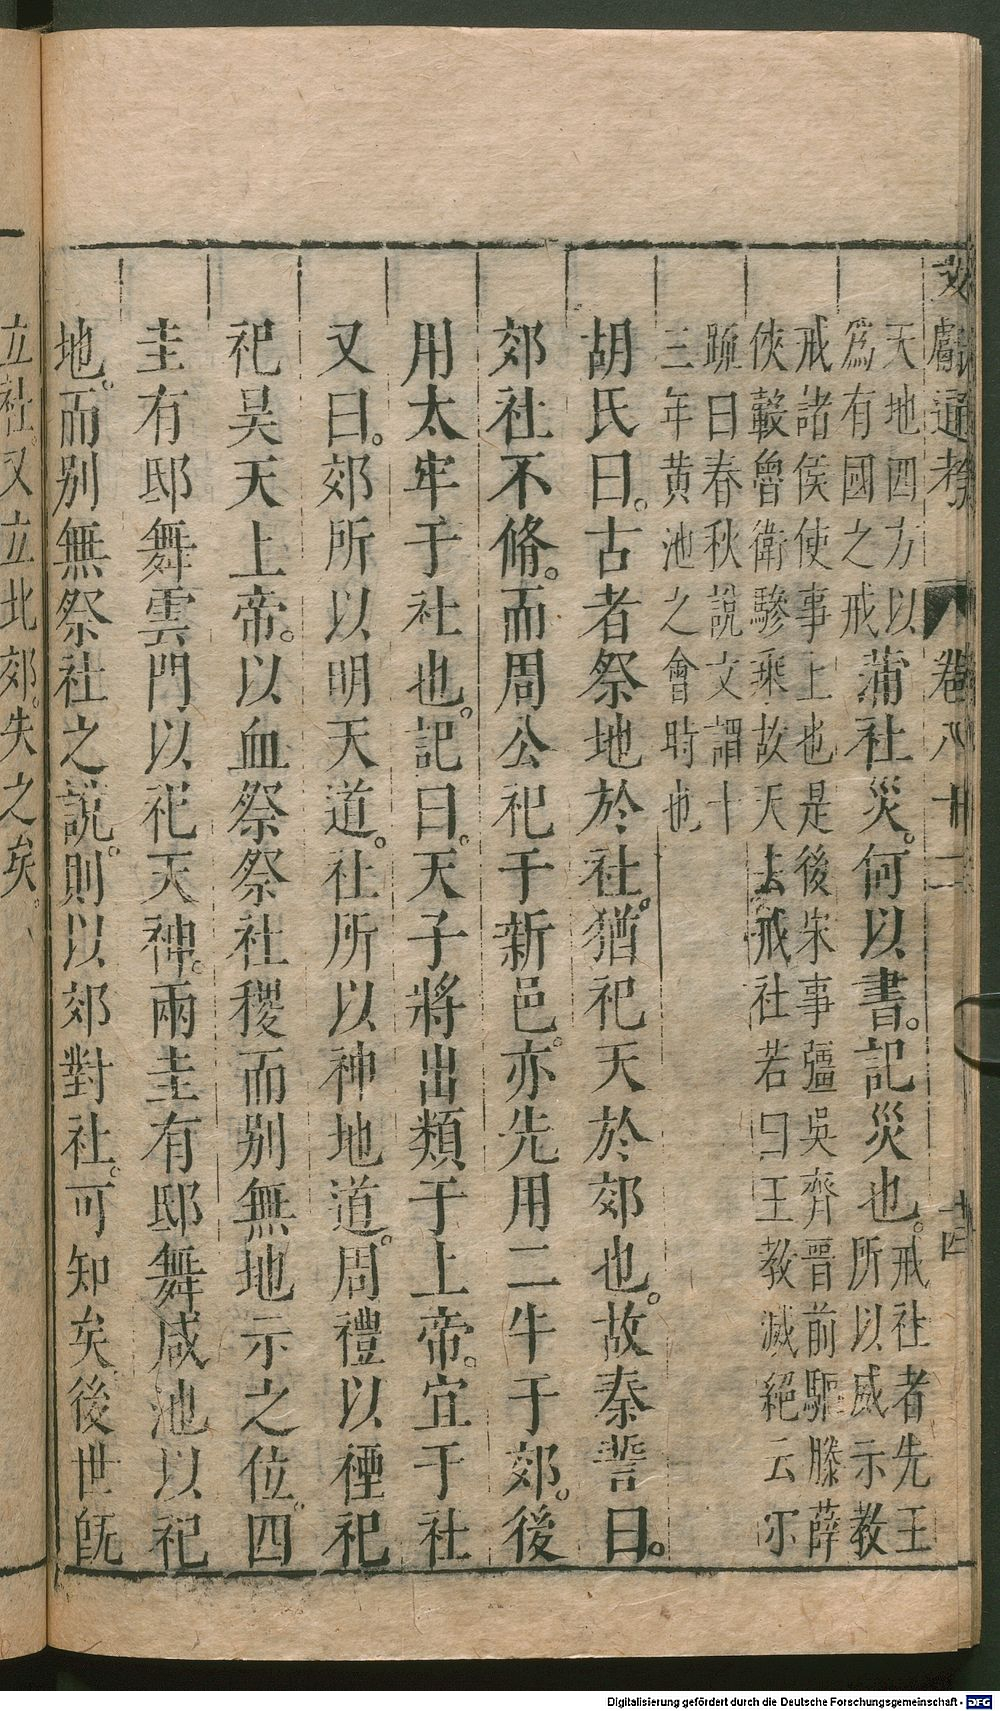 文獻通考 卷八十二 十四
天地四方以
爲有國之戒
蒲社災。何以書。記災也。
戒社者先王
所以威示教
戒諸侯使事上也是後宋事彊吳齊晉前驅滕薛
俠轂魯衛驂乘故天去戒社若曰王教滅絕云尔
䟽曰春秋說文謂十
三年黄池之會時也
胡氏曰。古者祭地於社。猶祀天於郊也。故泰誓曰。
郊社不脩。而周公祀于新邑。亦先用二牛于郊。後
用太牢于社也。記曰。天子將出類于上帝。宜于社
又曰。郊所以明天道。社所以神地道。周禮以禋祀
祀昊天上帝。以血祭祭社稷而别無地示之位。四
圭有邸舞雲門以祀天神。兩圭有邸舞咸池以祀
地。而别無祭社之說。則以郊對社。可知矣。後世旣
立社。又立北郊。失之矣。
Digitalisierung gefördert durch die Deutsche Forschungsgemeinschaft - DFG